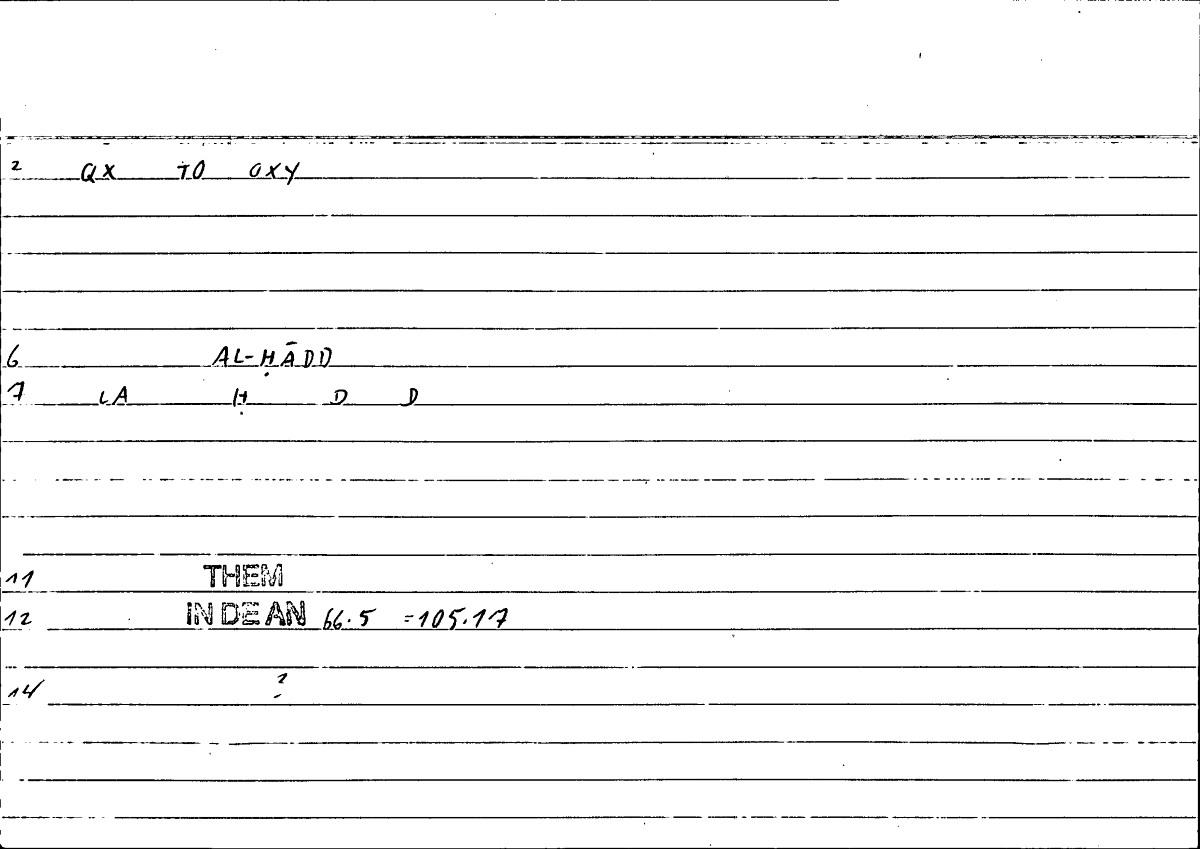 2 QX TO OXY
6 AL-ḤĀDD
7 LA Ḥ D D
11 THEM
12 IN DE AN 66.5 =105.17
14 ?